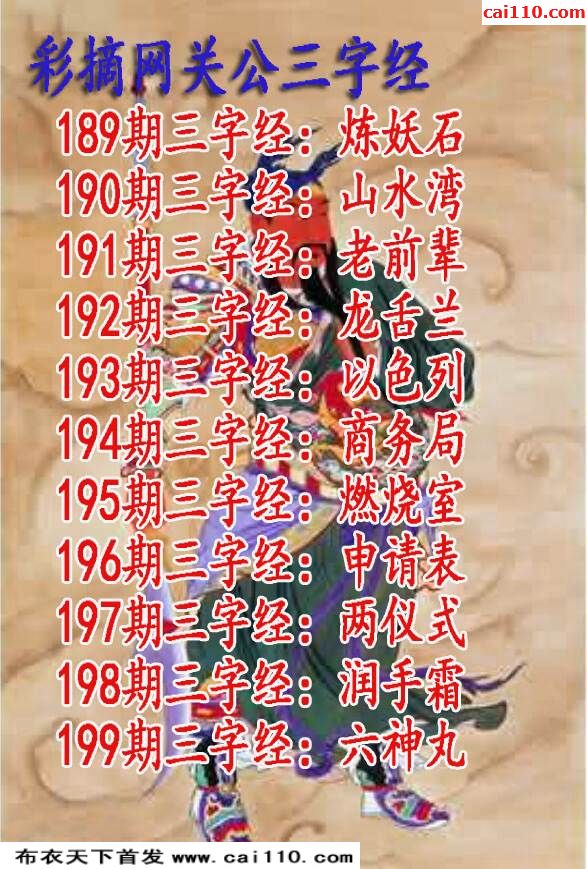 cai110.com
彩摘网关公三字经
189期三字经：炼妖石
190期三字经：山水湾
191期三字经：老前辈
192期三字经：龙舌兰
193期三字经：以色列
194期三字经：商务局
195期三字经：燃烧室
196期三字经：申请表
197期三字经：两仪式
198期三字经：润手霜
199期三字经：六神丸
布衣天下首发 www.cai110.com